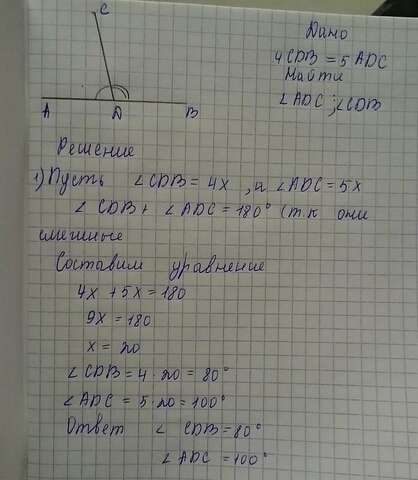 C
A D B
Дано
4CDB = 5ADC
Найти
∠ADC ; ∠CDB
Решение
1) Пусть ∠CDB = 4x , а ∠ADC = 5x
∠CDB + ∠ADC = 180° (т.к они
смежные
Составим уравнение
4x + 5x = 180
9x = 180
x = 20
∠CDB = 4 · 20 = 80°
∠ADC = 5 · 20 = 100°
Ответ ∠ CDB = 80°
∠ ADC = 100°